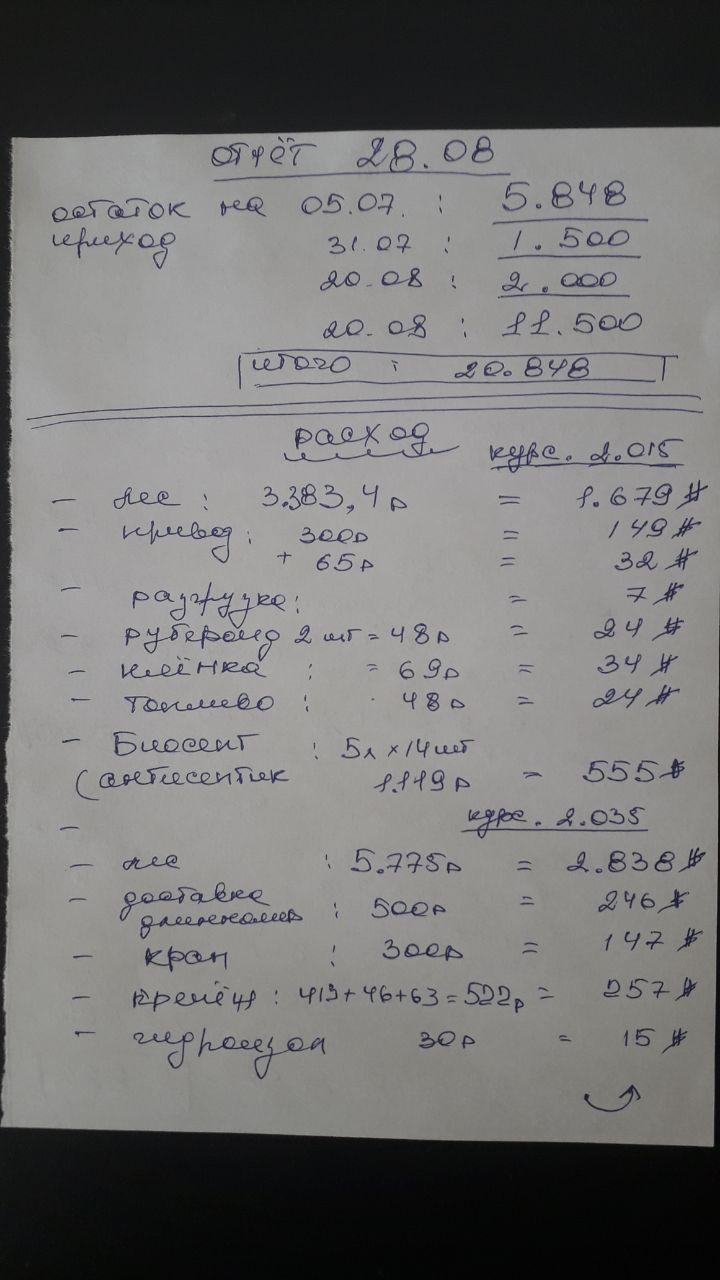 отчёт 28.08
остаток на 05.07. : 5.848
приход 31.07 : 1.500
20.08 : 2.000
20.08 : 11.500
итого : 20.848
расход
курс. 2.015
- лес : 3.383,4р = 1.679$
- привод : 300р = 149$
+ 65р = 32$
- разгрузка : = 7$
- рубероид 2 шт = 48р = 24$
- плёнка : = 69р = 34$
- топливо : 48р = 24$
- Биосепт : 5л x 14шт
(антисептик 1.119р = 555$
- курс. 2.035
- лес : 5.775р = 2.838$
- доставка
длинномер : 500р = 246$
- кран : 300р = 147$
- крепёж : 413+46+63=522р = 257$
- гидроизол 30р = 15$